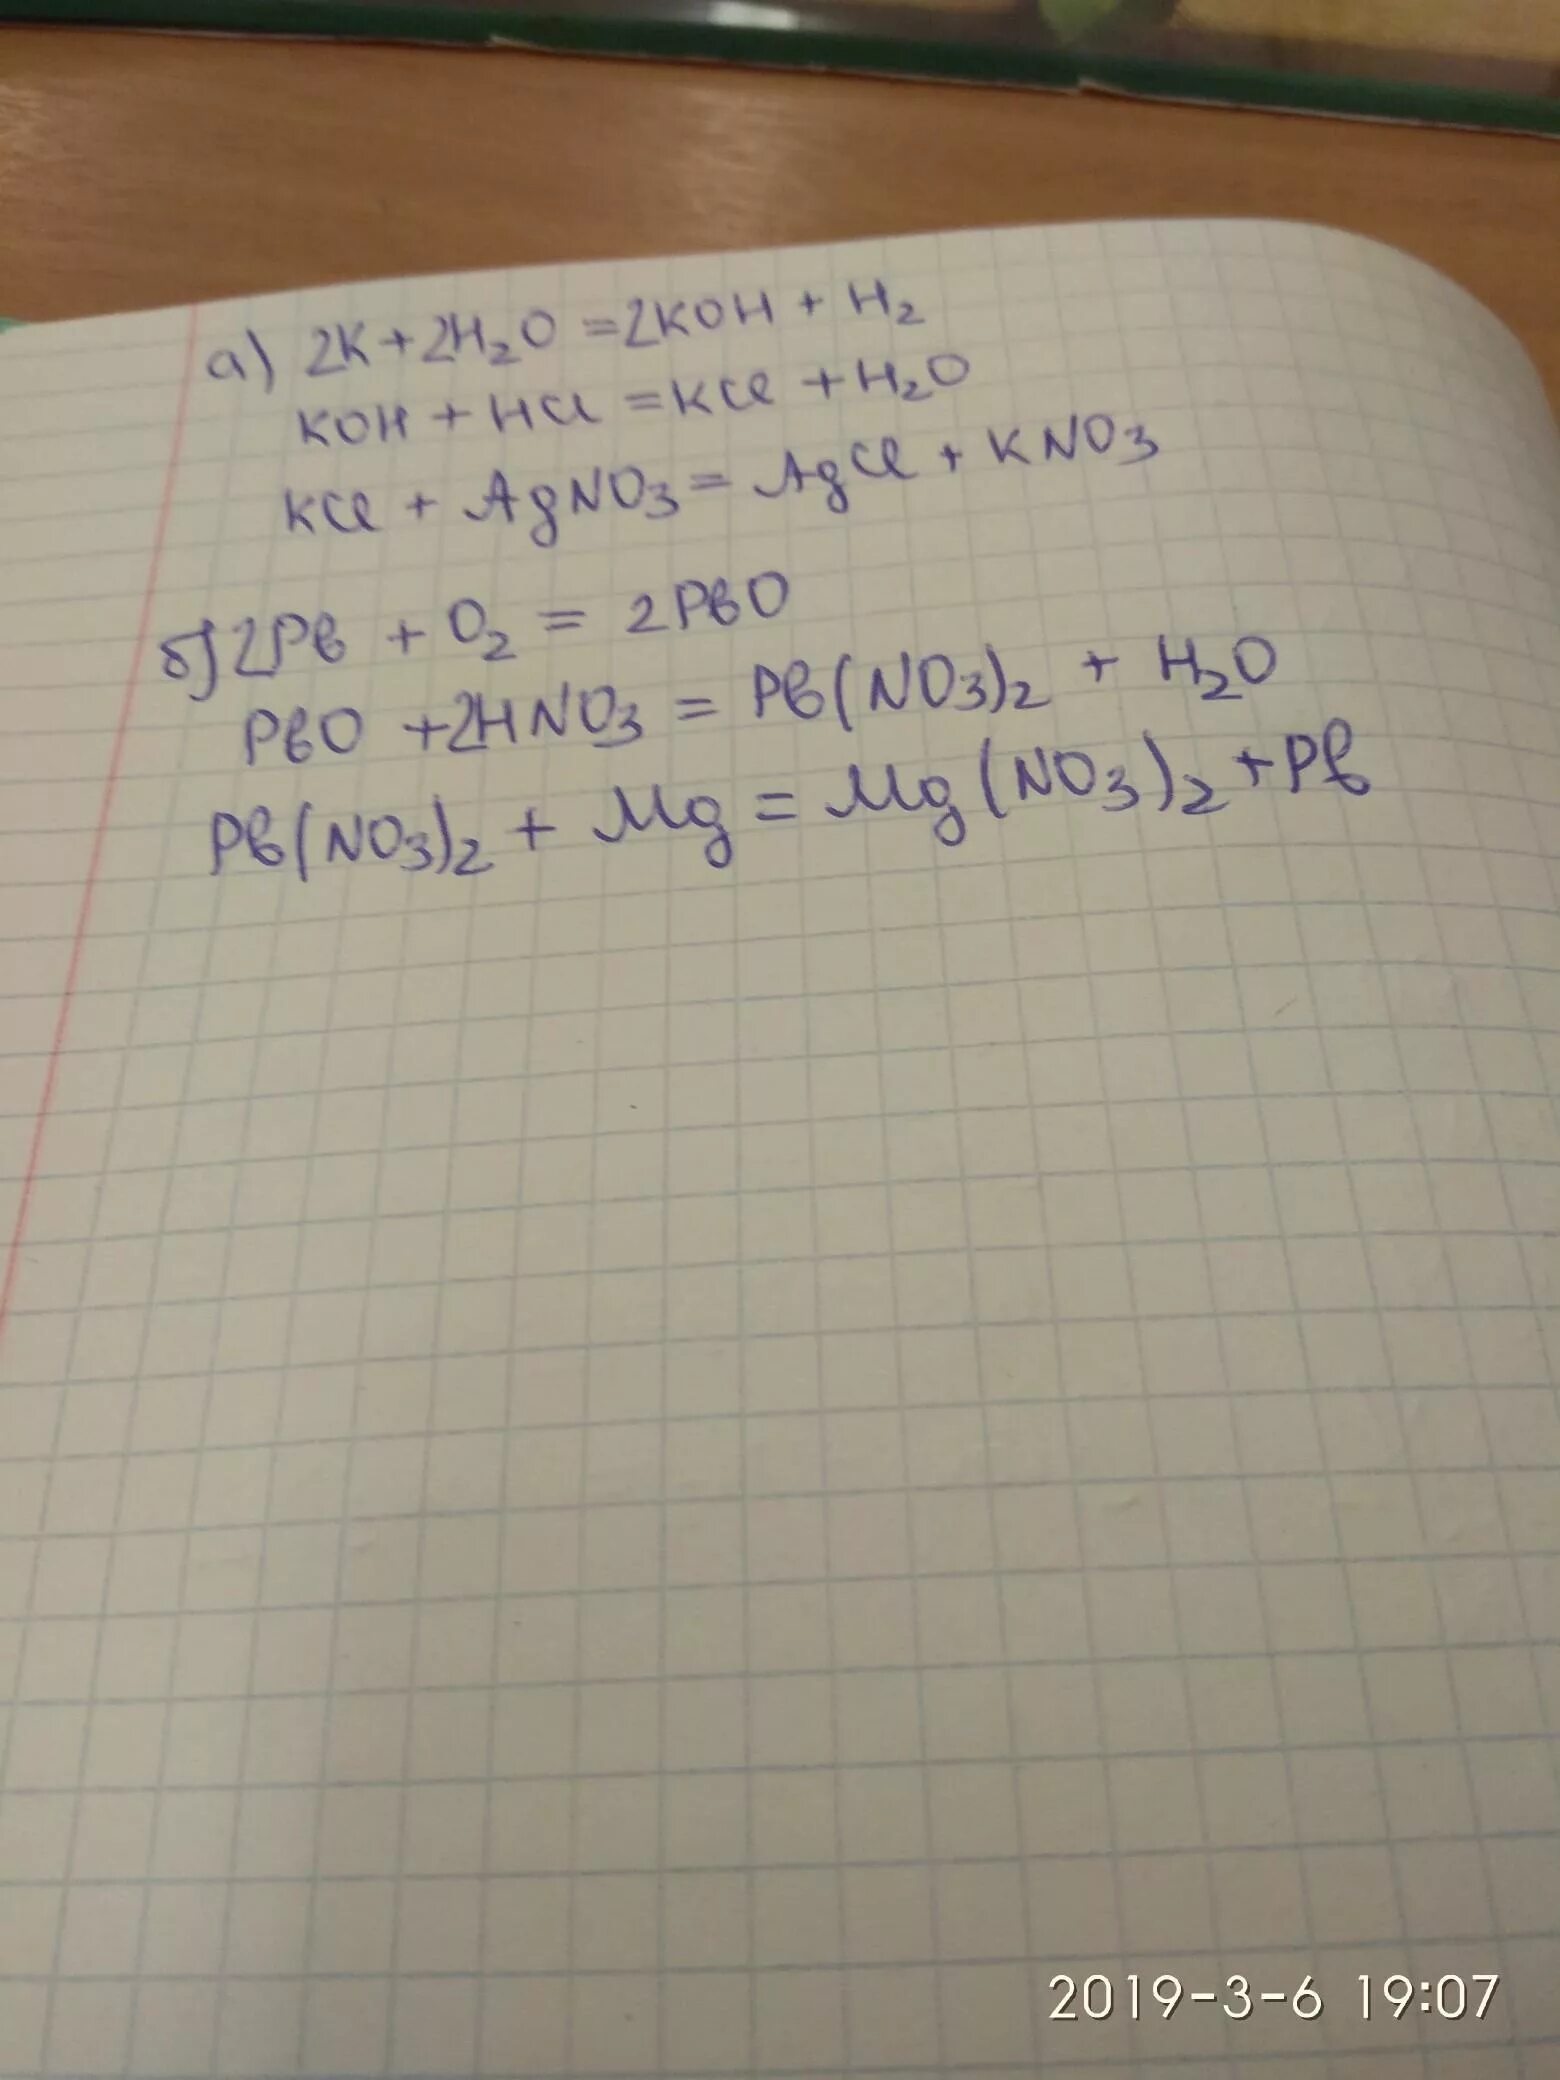 а) 2K + 2H₂O = 2KOH + H₂
KOH + HCl = KCl + H₂O
KCl + AgNO₃ = AgCl + KNO₃
б) 2Pb + O₂ = 2PbO
PbO + 2HNO₃ = Pb(NO₃)₂ + H₂O
Pb(NO₃)₂ + Mg = Mg(NO₃)₂ + Pb
2019-3-6 19:07